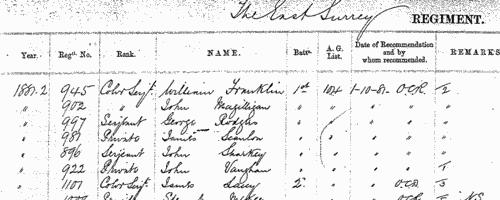 The East Surrey REGIMENT.
Year. Regtl. No. Rank. NAME. Battn. A. G. List. Date of Recommendation and by whom recommended. REMARKS
1881-2 945 Color Serjt. William Franklin 1st 104 1-10-81- O.C.R.
" 902 " John Magilligan " " " " "
" 997 Serjeant George Rodgers " " " "
" 987 Private James Scanlon " " " "
" 896 Serjeant John Sharkey " " " "
" 922 Private John Vaughan " " " "
" 1101 Color Serjt. James Lacey 2. " " O.C.R.